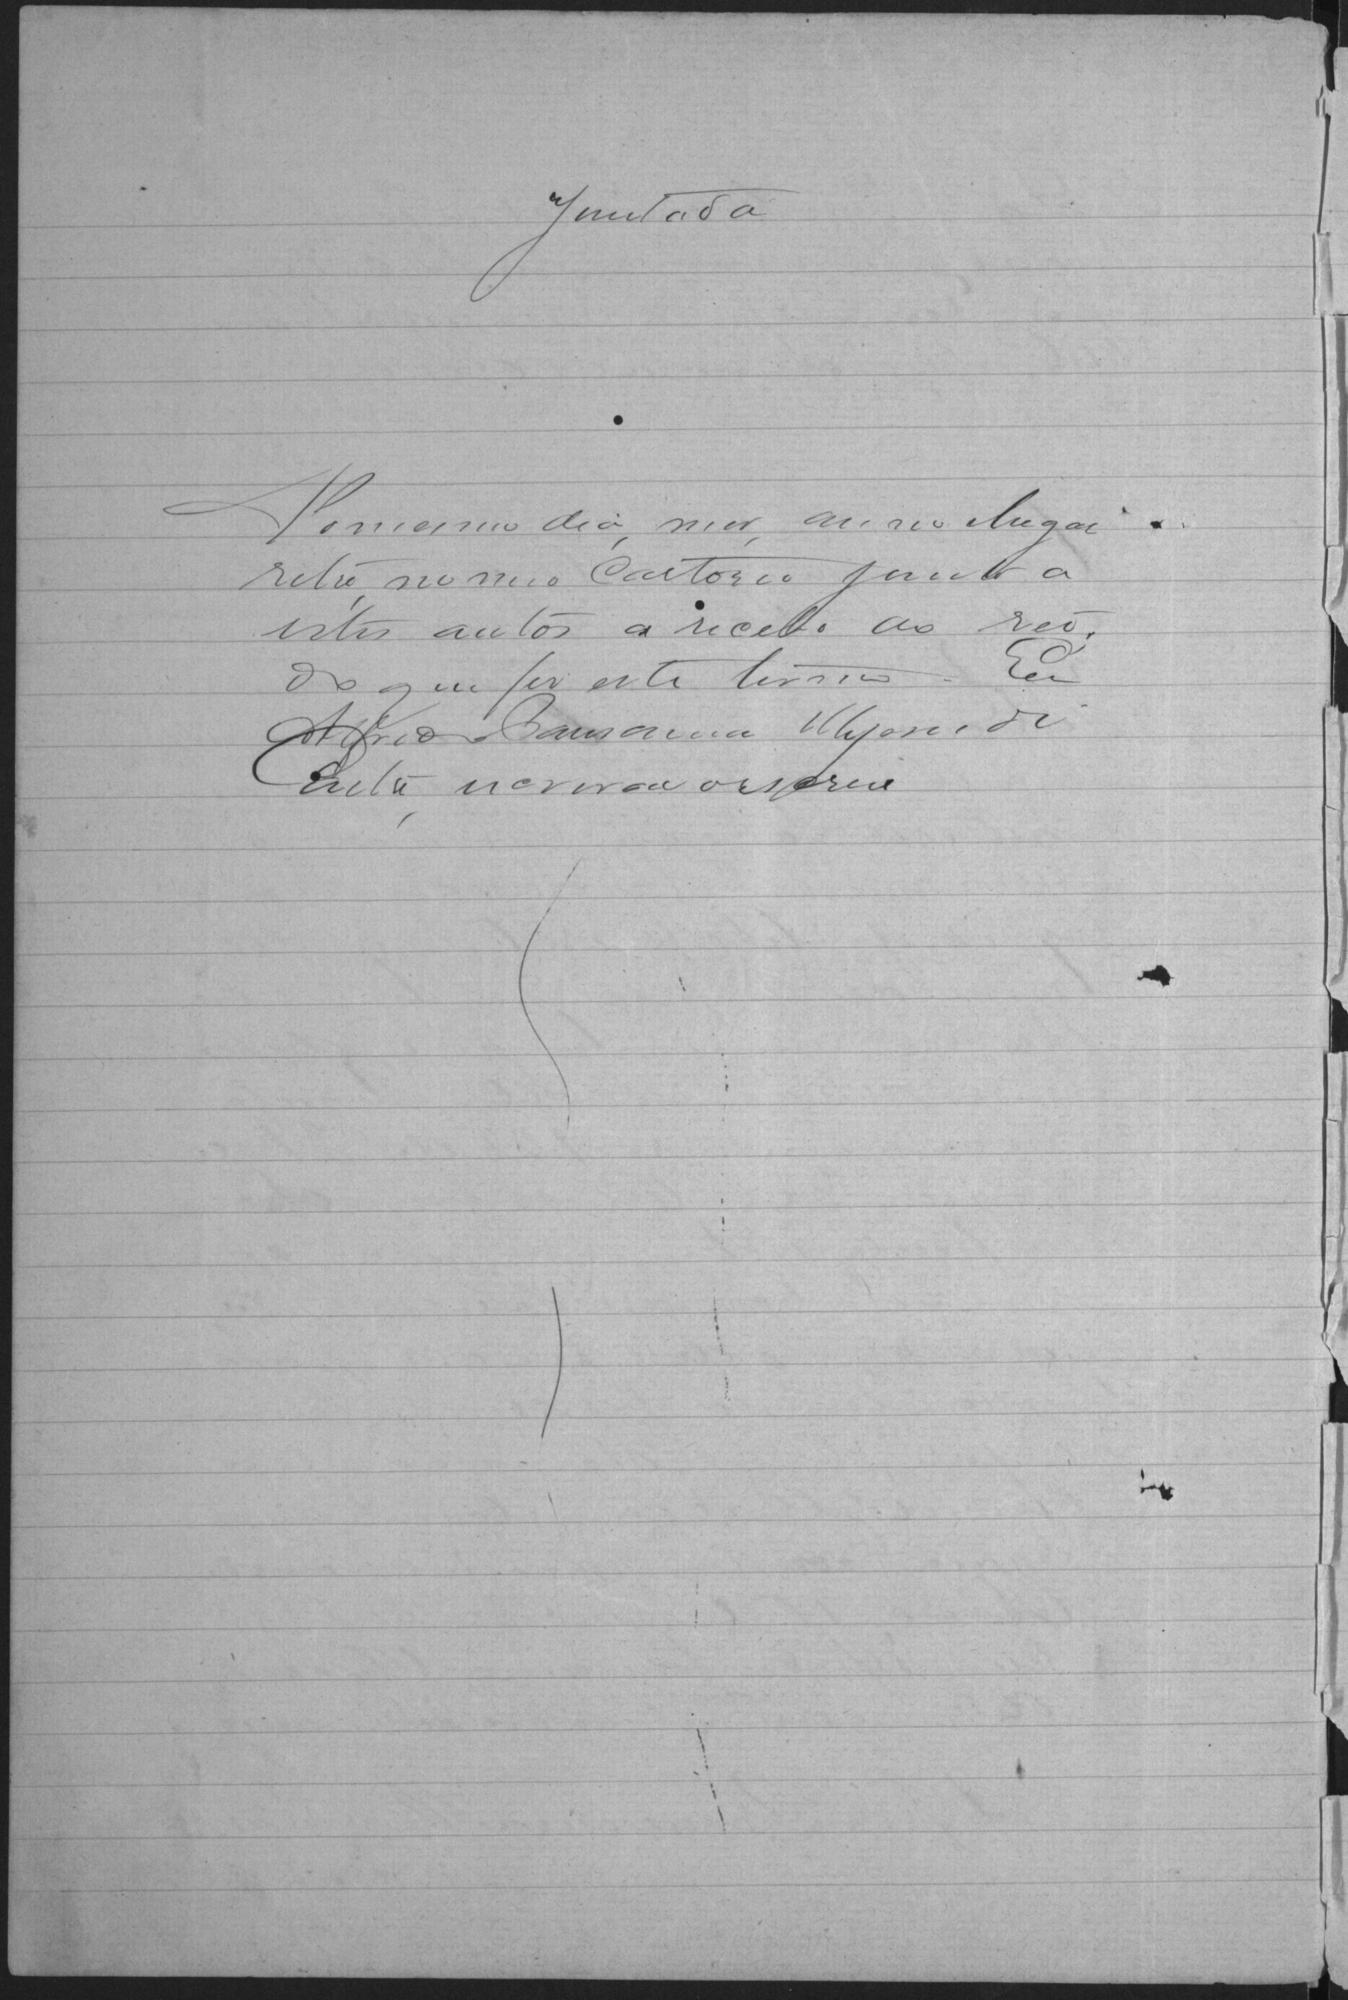 Juntada
No mesmo dia, mez, anno e lugar
retro, no meu Cartorio junto a
estes autos o recibo ao reo,
do que fiz este termo. Eu
Alfredo
escrivão o escrevi